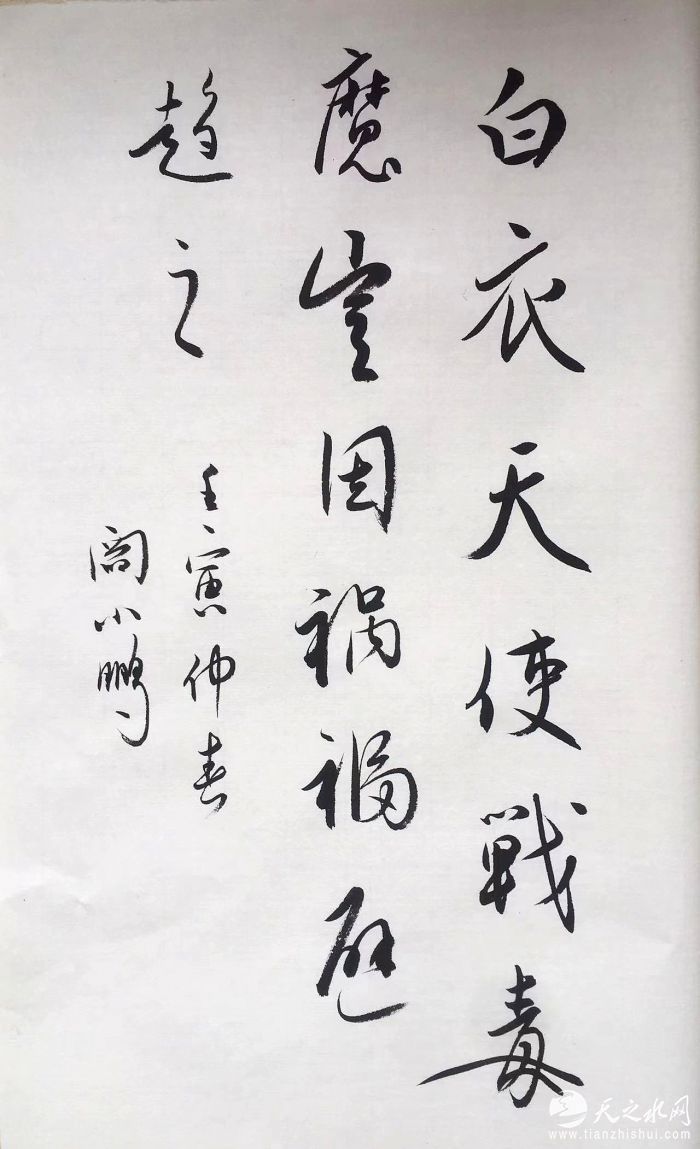 白衣天使戰毒
魔豈因祸福避
趋之
壬寅仲春
阎小鹏
天之水网
www.tianzhishui.com